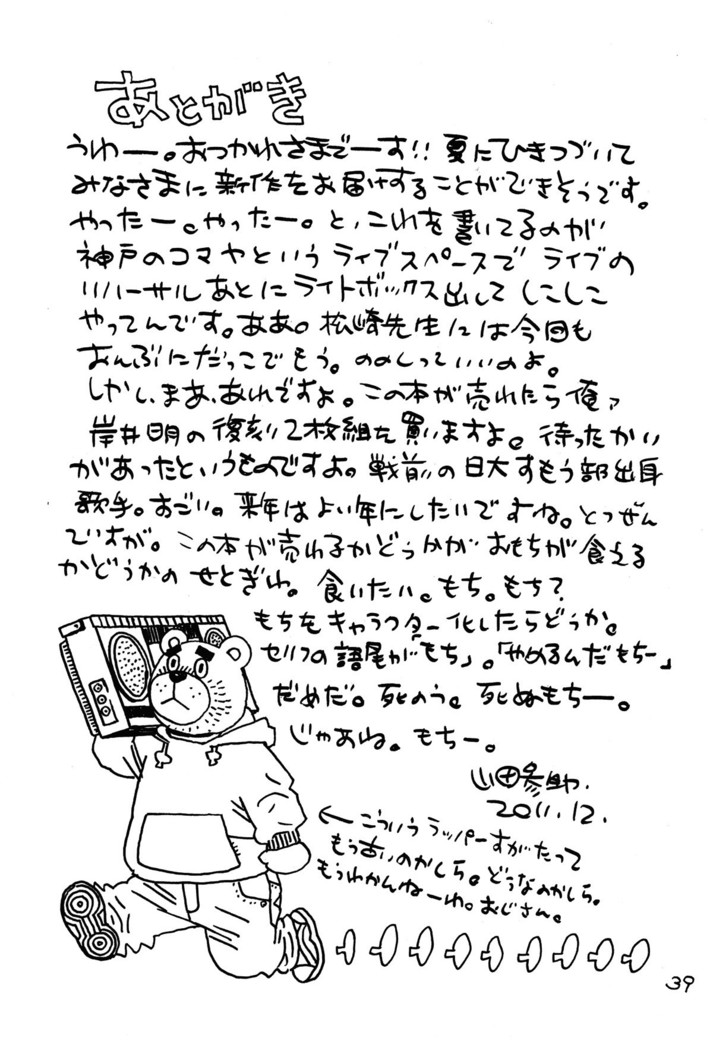 あとがき
うわー。おつかれさまでーす!! 夏にひきつづいて
みなさまに新作をお届けすることができそうです。
やったー。やったー。と、これを書いてるのが
神戸のコマヤというライブスペースで ライブの
リハーサルあとにライトボックス出して しこしこ
やってんです。ああ。松崎先生には今回も
おんぶにだっこでもう。ののしっていいのよ。
しかし、まあ、あれですよ。この本が売れたら俺ァ
岸井明の復刻2枚組を買いますよ。待ったかい
があったというものですよ。戦前の日大すもう部出身
歌手。すごい。来年はよい年にしたいですね。とつぜん
ですが。この本が売れるかどうかが おもちが食える
かどうかの せとぎわ。食いたい。もち。もち?
もちをキャラクター化したらどうか。
セリフの語尾が「もち」。「やめるんだもちー」
だめだ。死のう。死ぬもちー。
じゃあね。もちー。
山田参助.
2011.12.
←こういうラッパーすがたって
もう古いのかしら。どうなのかしら。
もうわかんねーわ。おじさん。
39